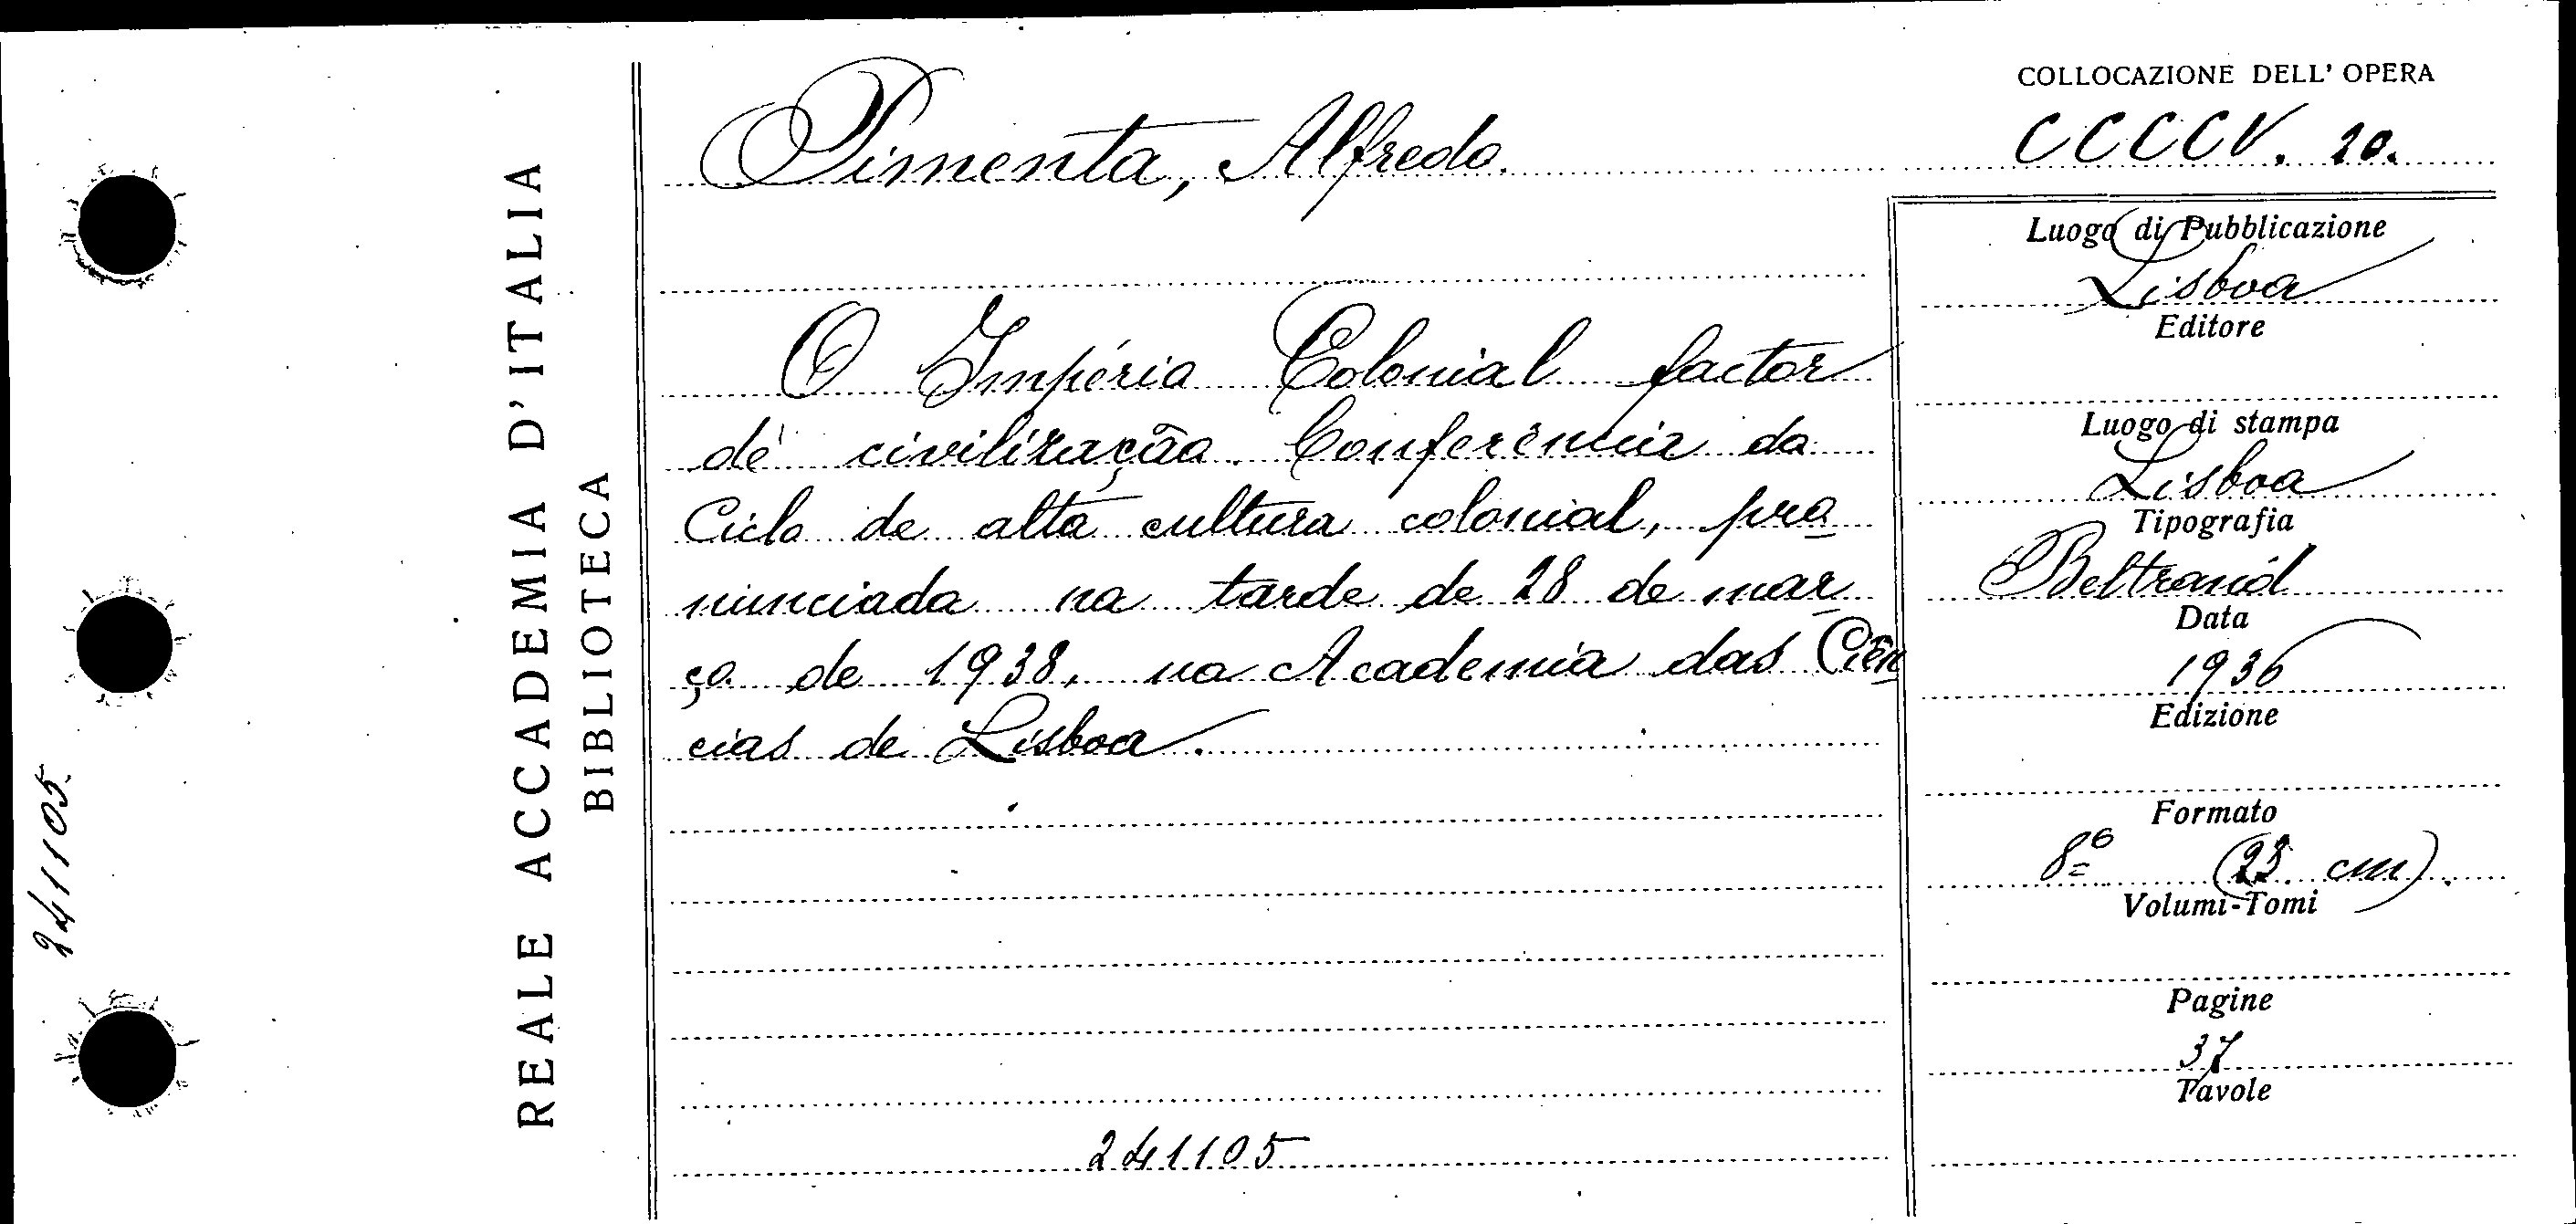 COLLOCAZIONE DELL' OPERA
CCCCV. 20.
Pimenta, Alfredo.
O Império Colonial factor
de civilização. Conferência do
Ciclo de alta cultura colonial, pro
nunciada na tarde de 28 de mar
ço de 1938, na Academia das Ciên
cias de Lisboa.
241105
Luogo di Pubblicazione
Lisboa
Editore
Luogo di stampa
Lisboa
Tipografia
Beltrand
Data
1936
Edizione
Formato
8º (23 cm).
Volumi-Tomi
Pagine
37
Tavole
REALE ACCADEMIA D'ITALIA
BIBLIOTECA
241105.